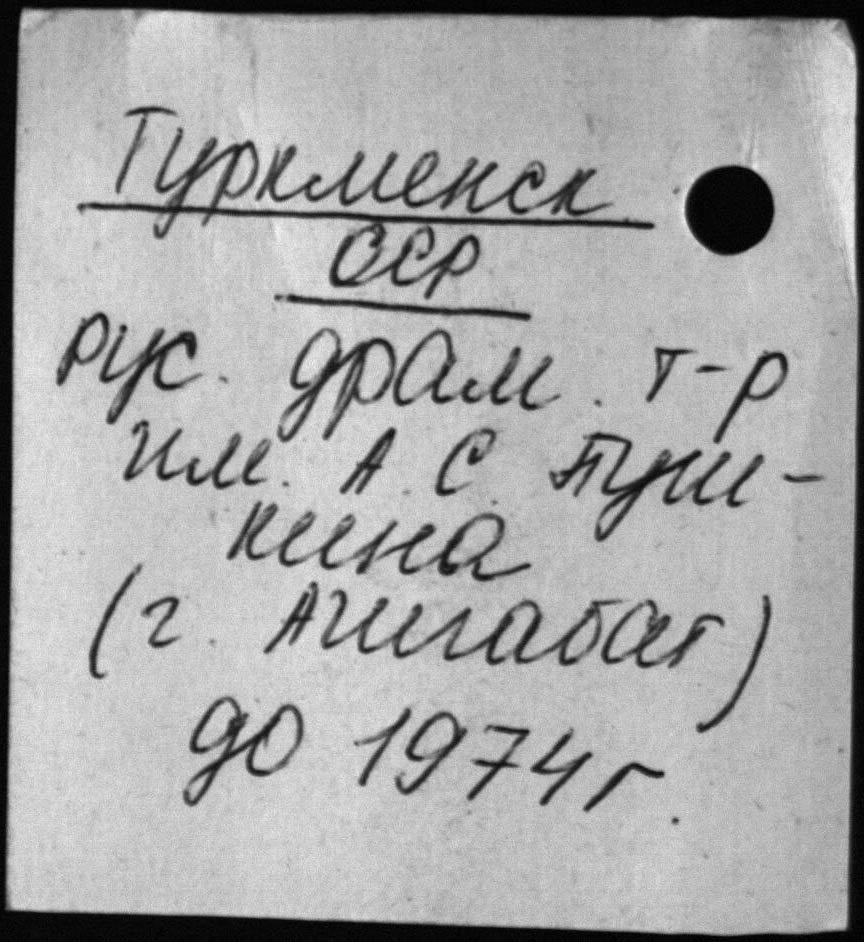 Туркменск
ССР
рус. драм. т-р
им. А. С. Пуш-
кина
(г. Ашгабат)
до 1974г.